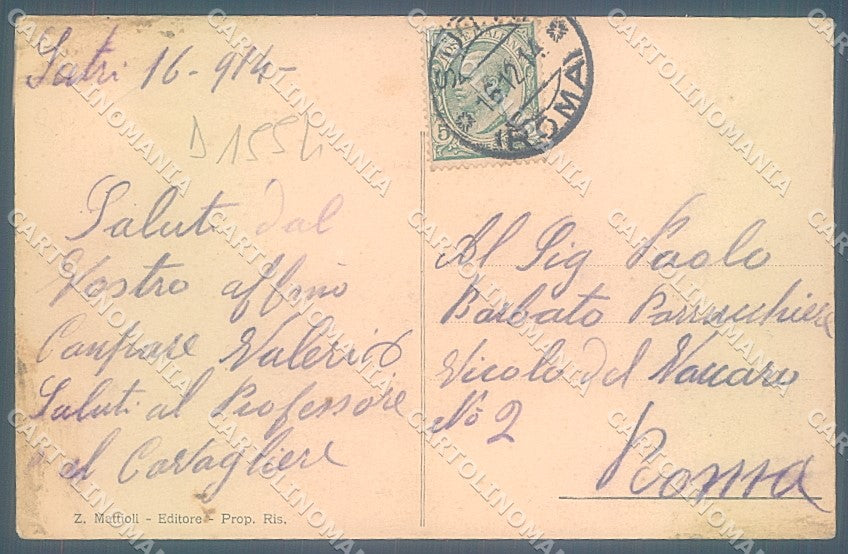 Sutri 16-914-
D1554
Saluti dal
Vostro affmo
Compare Valerio
Saluti al Professore
al Cavagliere
Z. Mattioli - Editore - Prop. Ris.
5
16.12.14
(ROMA)
Al Sig Paolo
Barbato Parrucchiere
Vicolo del Vaccaro
No 2
Roma
CARTOLINOMANIA